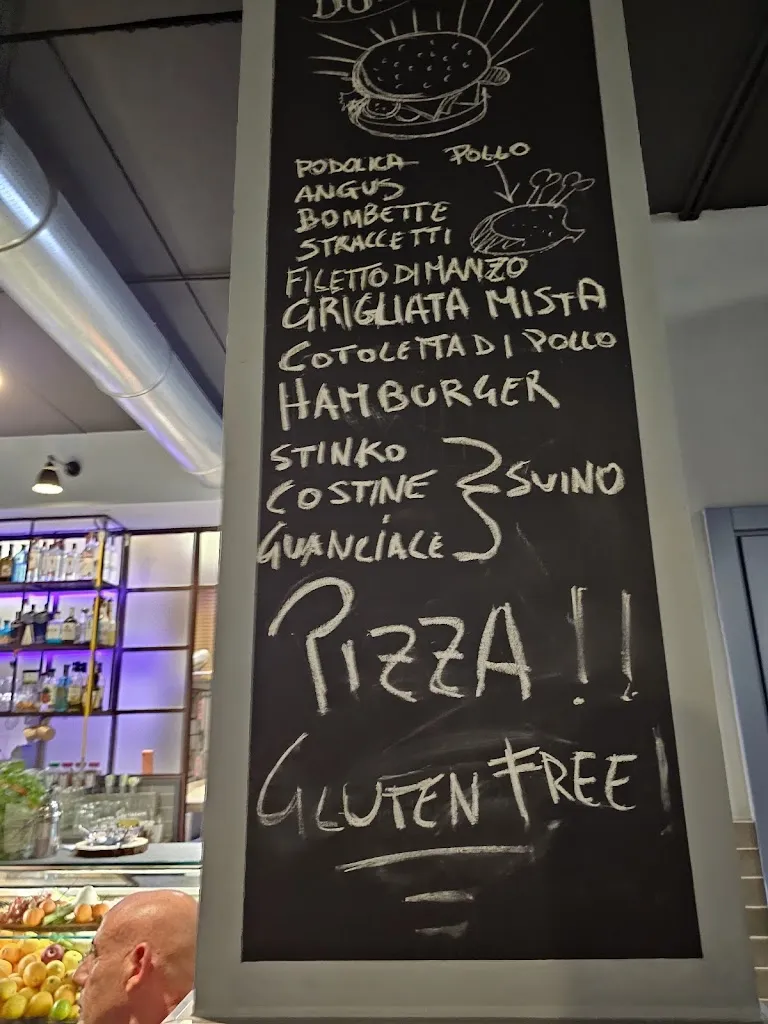 PODOLICA POLLO
ANGUS
BOMBETTE
STRACCETTI
FILETTO DI MANZO
GRIGLIATA MISTA
COTOLETTA DI POLLO
HAMBURGER
STINKO
COSTINE SUINO
GUANCIALE
PIZZA!!
GLUTEN FREE!